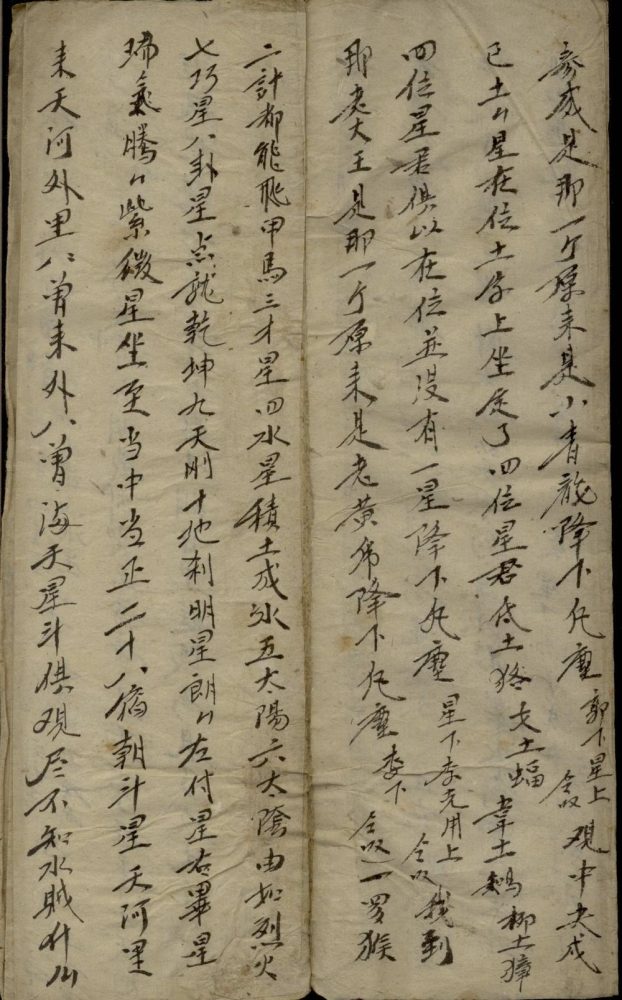 奈成是那一个原来是小青龍降下凡塵 郭下星上 念收 观中央戊
己土〃星在位土字上坐定了四位星君氐土狢女土蝠 韋土鵶柳土獐
四位星君俱以在位並没有一星降下凡塵 星下李元用上 念収 我到
那老大王是那一个原来是老黄佛降下凡塵 李下 念収 一罗猴
二計都能飛甲馬三才星四水星積土成氷五太陽六太陰由如烈火
七巧星八卦星点就乾坤九天刚十地刹明星朗〃左付星右畢星
瑞氣騰〃紫微星坐至当中当正二十八宿朝斗星天河里
来天河外里八曾来外八曾海天星斗俱观尽不知水贼什么